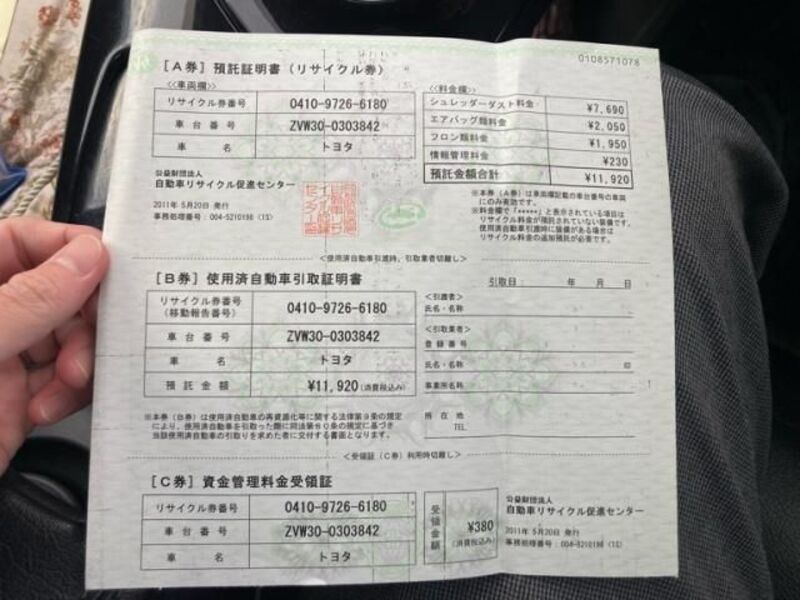 0108571078
[A券] 預託証明書(リサイクル券)
<<車両欄>>
リサイクル券番号 0410-9726-6180
車台番号 ZVW30-0303842
車名 トヨタ
公益財団法人
自動車リサイクル促進センター
2011年 5月20日 発行
事務処理番号:004-5210198 (1S)
<<料金欄>>
シュレッダーダスト料金 ¥7,690
エアバッグ類料金 ¥2,050
フロン類料金 ¥1,950
情報管理料金 ¥230
預託金額合計 ¥11,920
※本券(A券)は車両欄記載の車台番号の車両
にのみ有効です。
※料金欄で「*****」と表示されている項目は
リサイクル料金が預託されていない装備です。
使用済自動車引渡時に装備がある場合は
リサイクル料金の追加預託が必要です。
<使用済自動車引渡時、引取業者切離し>
[B券] 使用済自動車引取証明書
引取日: 年 月 日
リサイクル券番号
(移動報告番号) 0410-9726-6180
車台番号 ZVW30-0303842
車名 トヨタ
預託金額 ¥11,920(消費税込み)
<引渡者>
氏名・名称
<引取業者>
登録番号
氏名・名称 印
事業所名称
所在地
TEL
※本券(B券)は使用済自動車の再資源化等に関する法律第9条の規定
により、使用済自動車を引取った際に同法第80条の規定に基づき
当該使用済自動車の引取りを求めた者に交付する書面となります。
<受領証(C券)利用時切離し>
[C券] 資金管理料金受領証
リサイクル券番号 0410-9726-6180
車台番号 ZVW30-0303842
車名 トヨタ
受領金額 ¥380
(消費税込み)
公益財団法人
自動車リサイクル促進センター
2011年 5月20日 発行
事務処理番号:004-5210198 (1S)